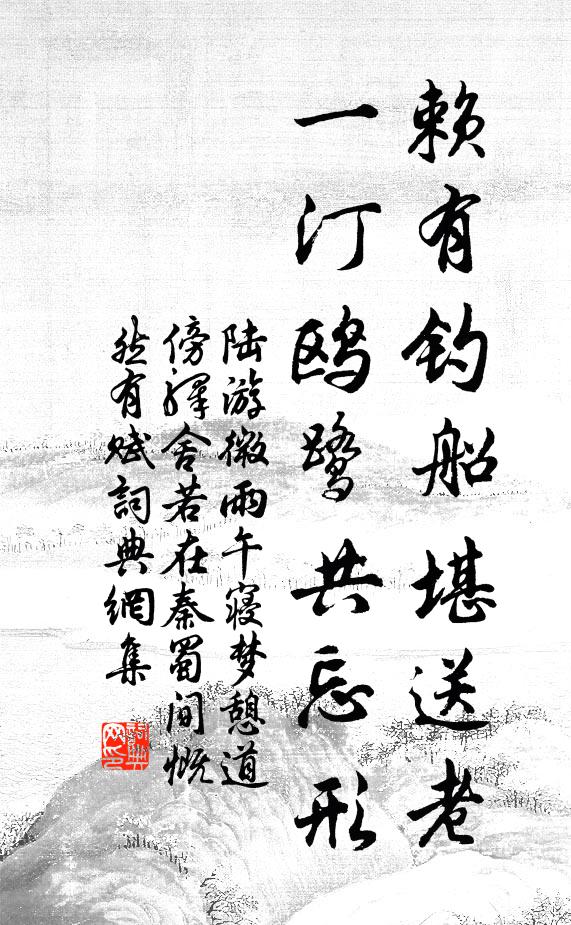 赖有钓船堪送老
一汀鸥鹭共忘形
陆游微雨午寝梦憩道
傍驿舍若在秦蜀间慨
然有赋詞典網集